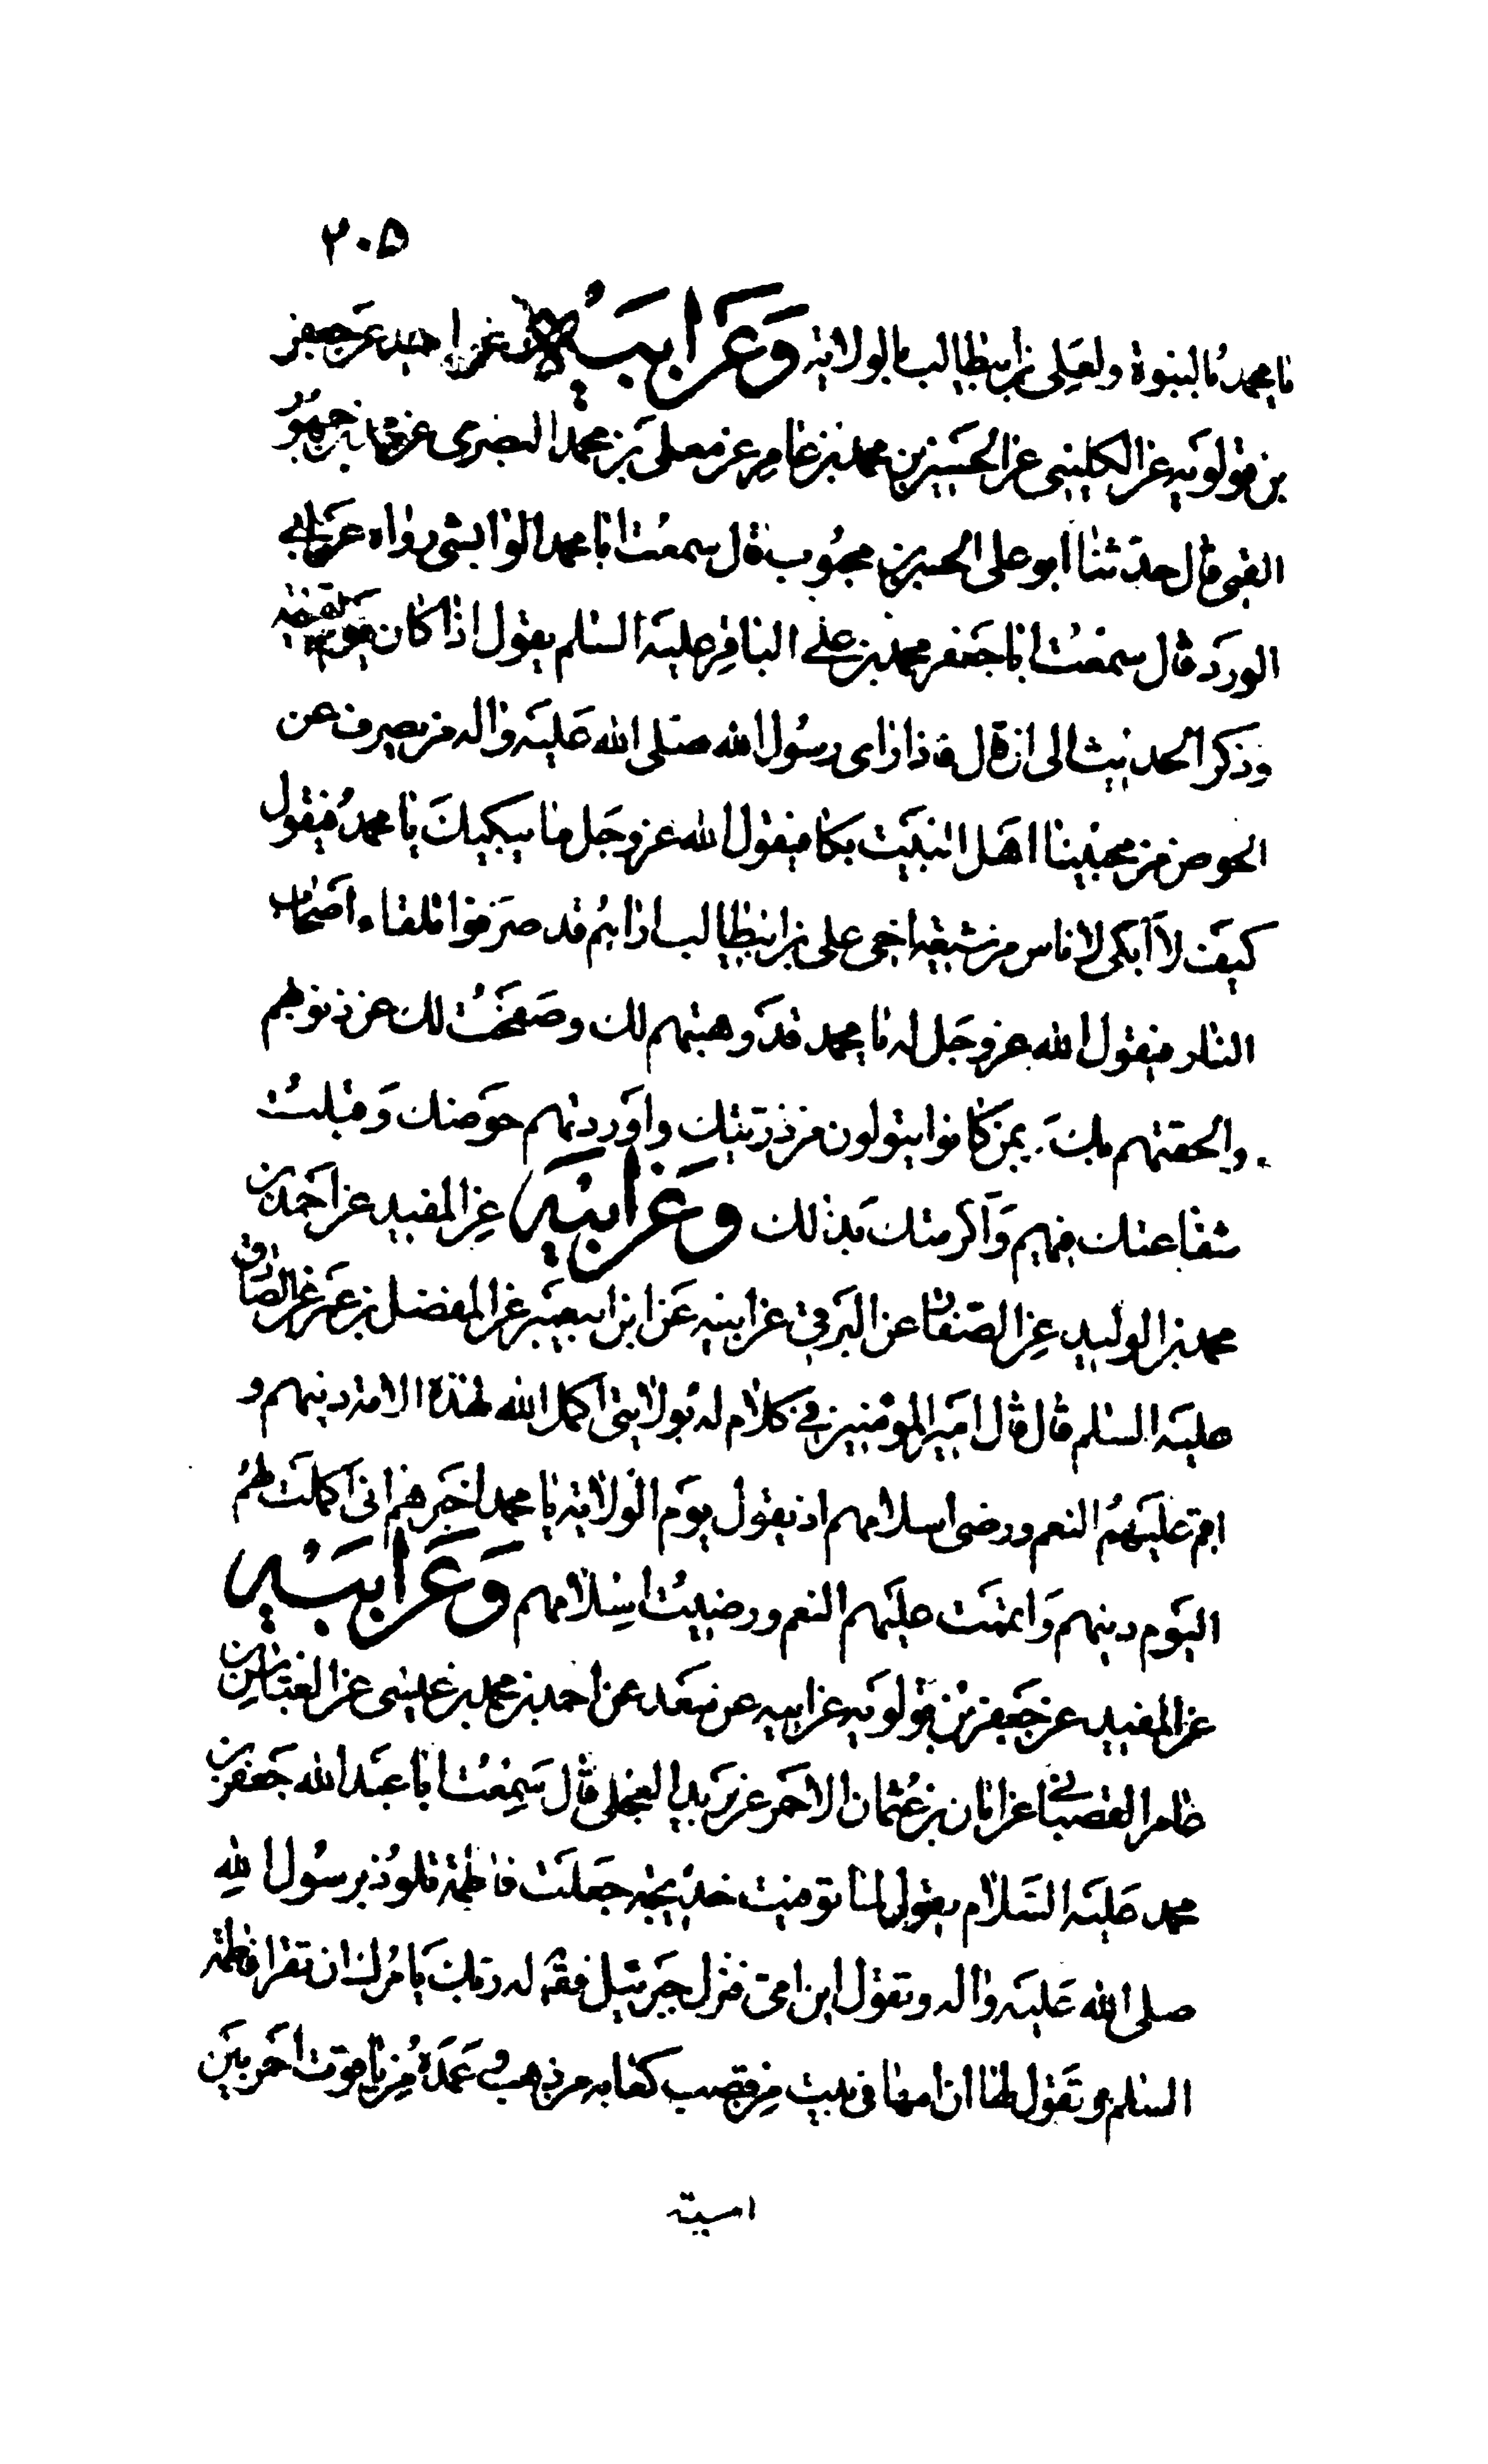 ٢٠٥
يا محمد بالنبوة ولعلي بن ابيطالب بالولاية وَعَن ابيهِ عن المفيد عن جعفر
بن قولويه عن الكليني عن الحسين بن محمد بن عامر عن معلى بن محمد البصري عن محمد بن جمهور
القمي قال حدثنا ابو علي الحسن بن محبوب قال سمعت ابا محمد الوابشي رواه عن ابي
الورد قال سمعت ابا جعفر محمد بن علي الباقر عليه السلم يقول اذا كان يوم القيمة
وذكر الحديث الى ان قال فاذا رأى رسول الله صلى الله عليه واله من يصرف عن
الحوض من محبينا اهل البيت بكا فيقول الله عز وجل ما يبكيك يا محمد فيقول
كيف لا ابكى لاناس من شيعة اخى على بن ابيطالب اراهم قد صرفوا تلقاء اصحاب
النار فيقول الله عز وجل له يا محمد قد وهبتهم لك وصفحت لك عن ذنوبهم
والحقتهم بك وبمن كانوا يتولون من ذريتك واوردتهم حوضك وقبلت
شفاعتك فيهم واكرمتك بذلك وَعَن ابيه عن المفيد عن احمد بن
محمد بن الوليد عن الصفار عن البرقي عن ابيه عن ابن ابي عمير عن المفضل بن عمر عن الصادق
عليه السلم قال قال امير المؤمنين في كلام له بولايتى اكمل الله لهذه الامة دينهم و
اتم عليهم النعم ورضى اسلامهم اذ يقول يوم الولاية يا محمد اخبرهم انى اكملت لهم
اليوم دينهم واتممت عليهم النعم ورضيت اسلامهم وَعَن ابيه
عن المفيد عن جعفر بن قولويه عن ابيه عن سعد عن احمد بن محمد بن عيسى عن العباس بن
عامر القصباني عن ابان بن عثمان الاحمر عن بريد العجلى قال سمعت ابا عبد الله جعفر بن
محمد عليه السلام يقول لما توفيت خديجة جعلت فاطمة تلوذ برسول الله
صلى الله عليه واله وتقول اين امى فنزل جبرئيل فقال له ربك يامرك ان تقرا فاطمة
السلم وتقول لها ان امها في بيت من قصب كعابه من ذهب وعمده من ياقوت احمر بين
اسية